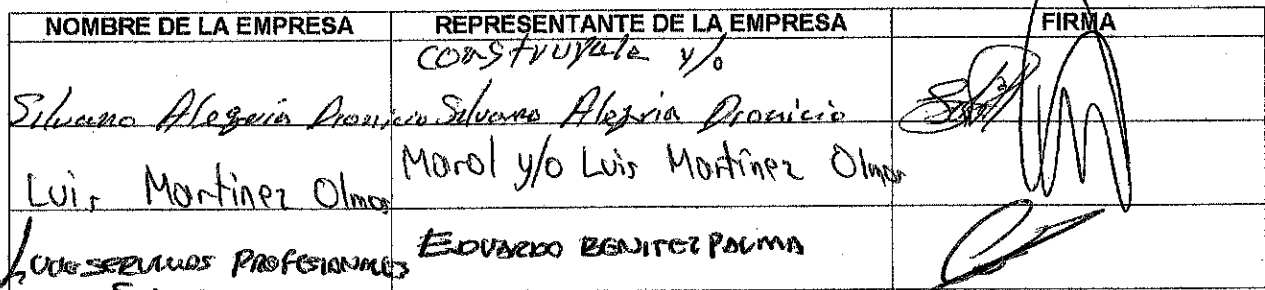 NOMBRE DE LA EMPRESA REPRESENTANTE DE LA EMPRESA FIRMA
Construyale y/o
Silvano Alegria Dionicio Silvano Alegria Dionicio
Luis Martinez Olmos Marol y/o Luis Martínez Olmos
SERVICIOS PROFESIONALES EDUARDO BENITEZ PALMA